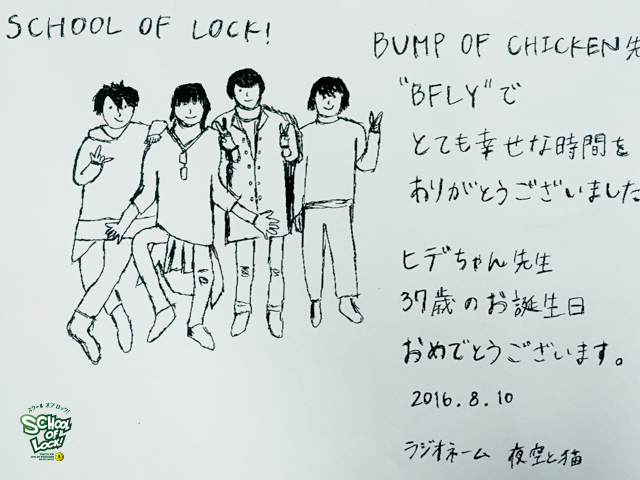 SCHOOL OF LOCK!
BUMP OF CHICKEN先
"BFLY"で
とても幸せな時間を
ありがとうございました
ヒデちゃん先生
37歳のお誕生日
おめでとうございます。
2016.8.10
ラジオネーム 夜空と猫
スクール オブ ロック!
SCHOOL OF LOCK!